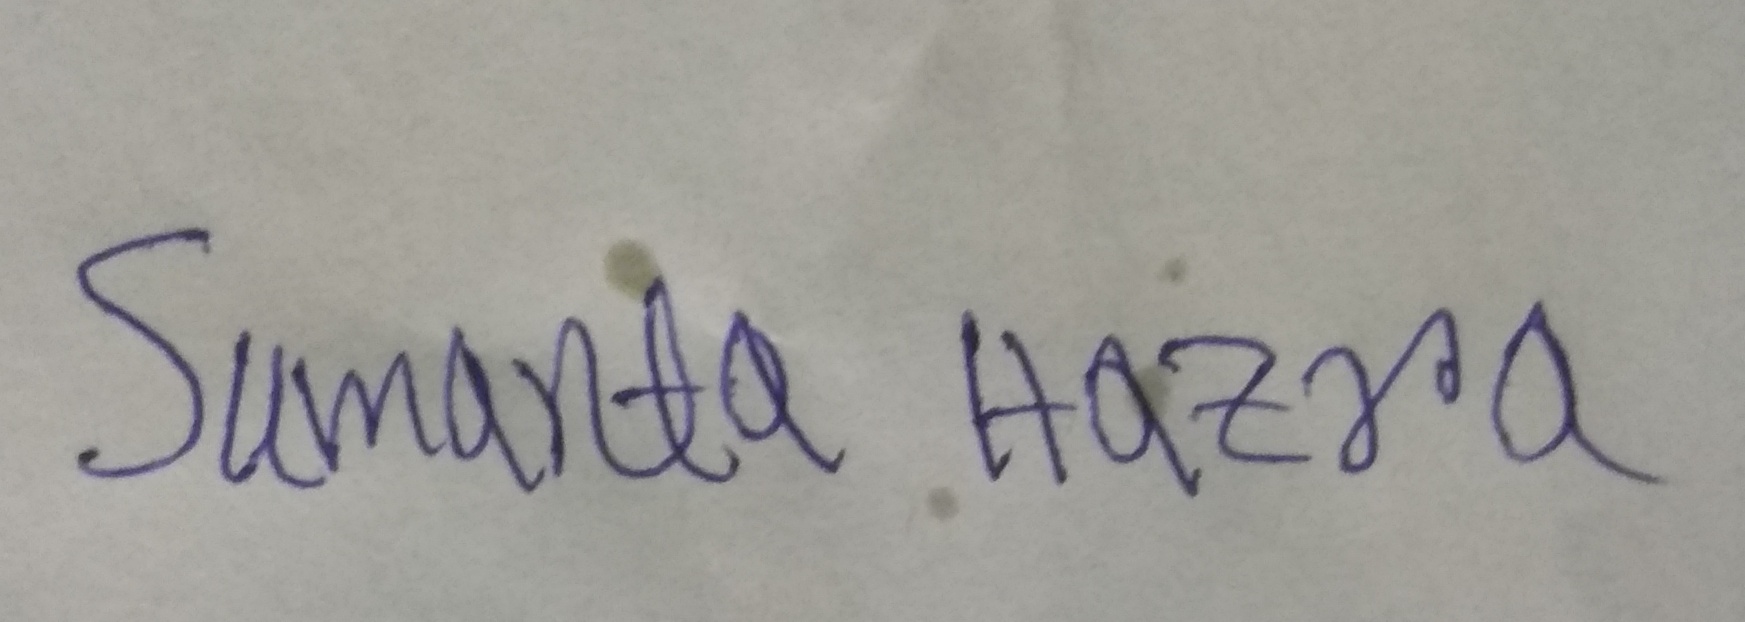 Sumanta Hazra